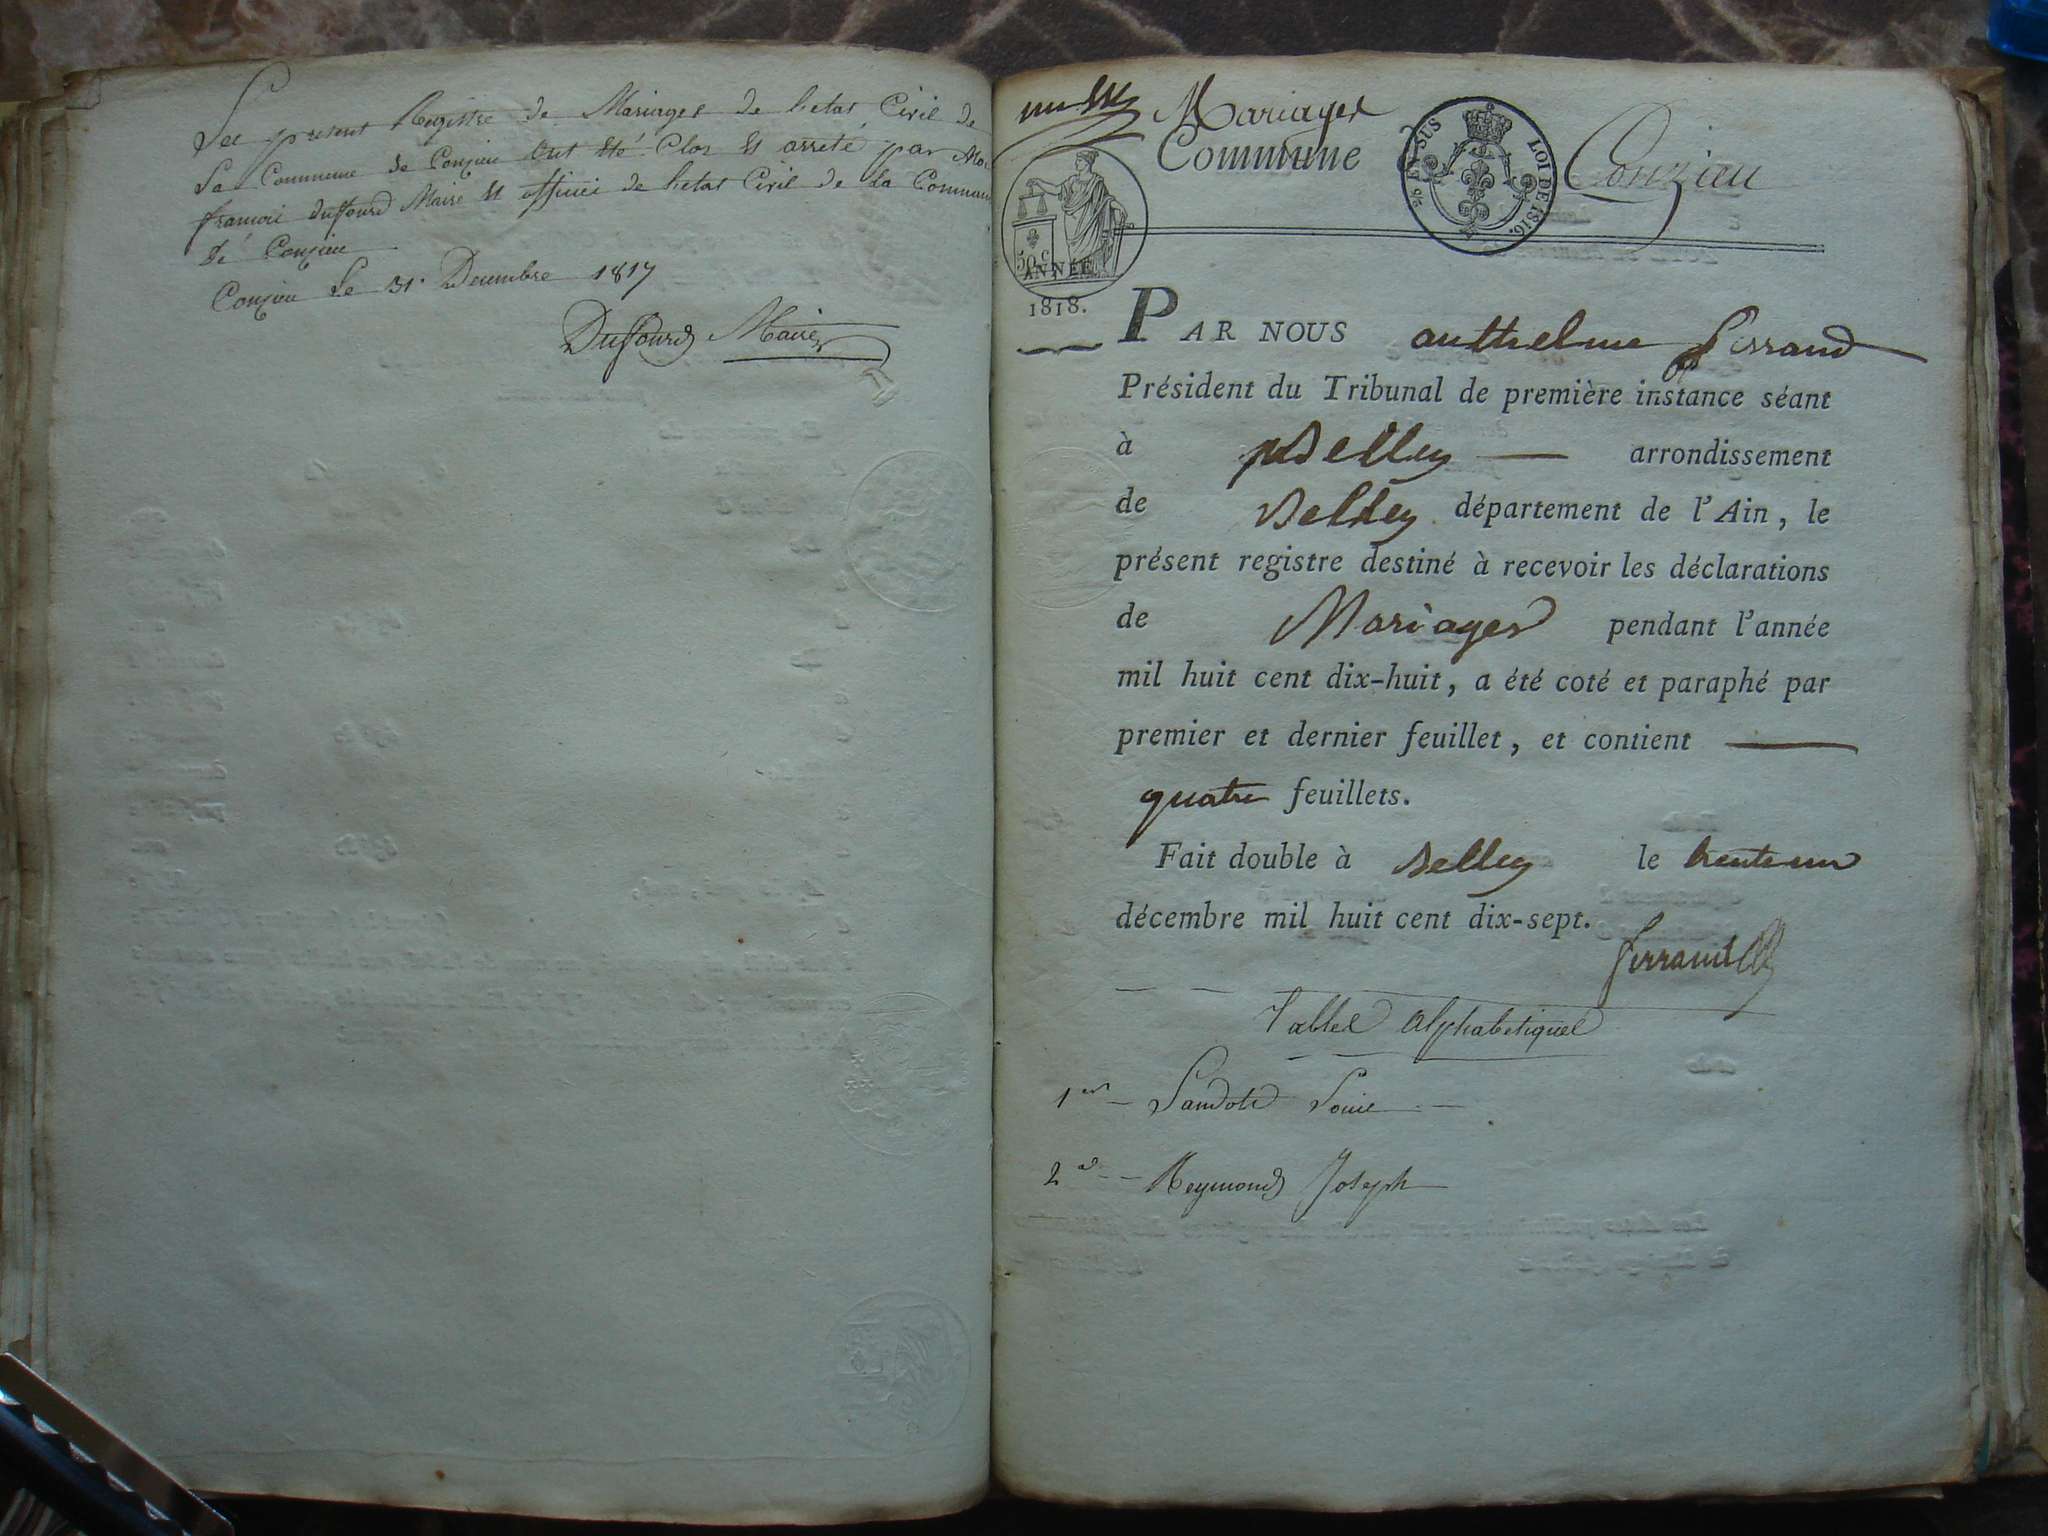 Les présent Registre de Mariages de l'etat Civil de
La Commune de Conzieu ont été Clos et arreté par Mor
francois duffourd Maire et officier de l'etat Civil de la Commune
de Conzieu
Conzieu Le 31 Decembre 1817
Duffourd Maire
Mariages
Commune Conzieu
2/5 EN SUS LOI DE 1816.
50 c
ANNÉE
1818.
PAR NOUS anthelme ferrand
Président du Tribunal de première instance séant
à Belley arrondissement
de Belley département de l'Ain, le
présent registre destiné à recevoir les déclarations
de Mariages pendant l'année
mil huit cent dix-huit, a été coté et paraphé par
premier et dernier feuillet, et contient
quatre feuillets.
Fait double à Belley le trente un
décembre mil huit cent dix-sept.
ferrand
Tables alphabetiques
1er Landoté Louis
2d Reymond Joseph